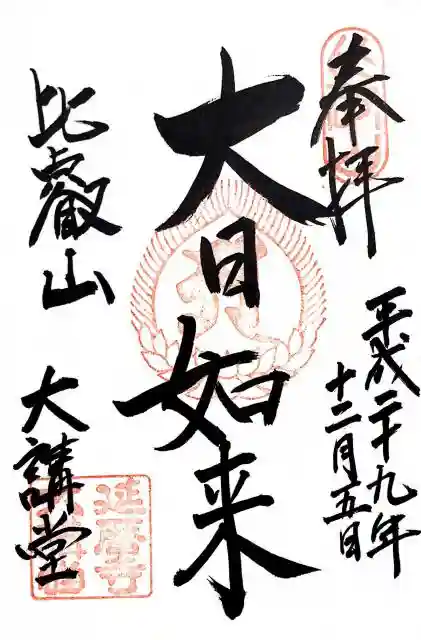 奉拝
平成二十九年
十二月五日
大日如来
比叡山
大講堂